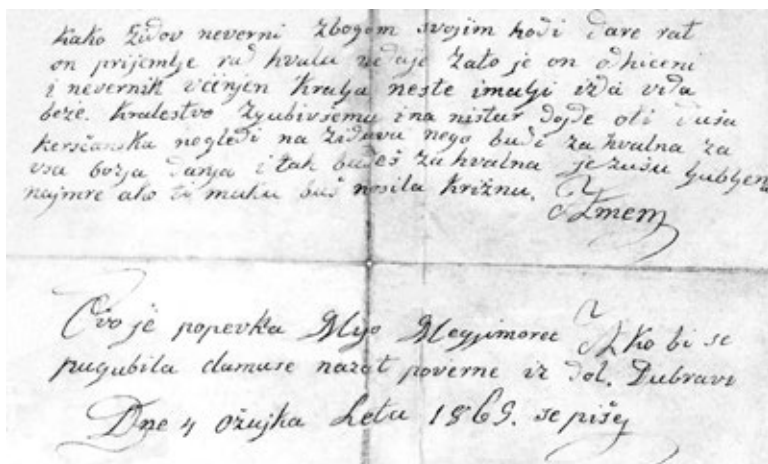 kako židov neverni zbogom svojim hodi dare rat
on prijemlje rad hvalu nedaje zato je on odhiceni
i nevernik včinjen kralja neste imalji izda vida
beže. kralestvo zgubivšemu i na ništar dojde oti duša
kerščanska negledi na židovu nego budi zahvalna za
vsa božja danja i tak budeš zahvalna jezušu ljubljen
najmre ako ti muku buš nosila križnu.
Amem
Ovo je popevka Mijo Megjimorec Ako bi se
pugubila damuse nazat poverne iz dol. Dubrave
Dne 4 ožujka Letu 1869. se piše